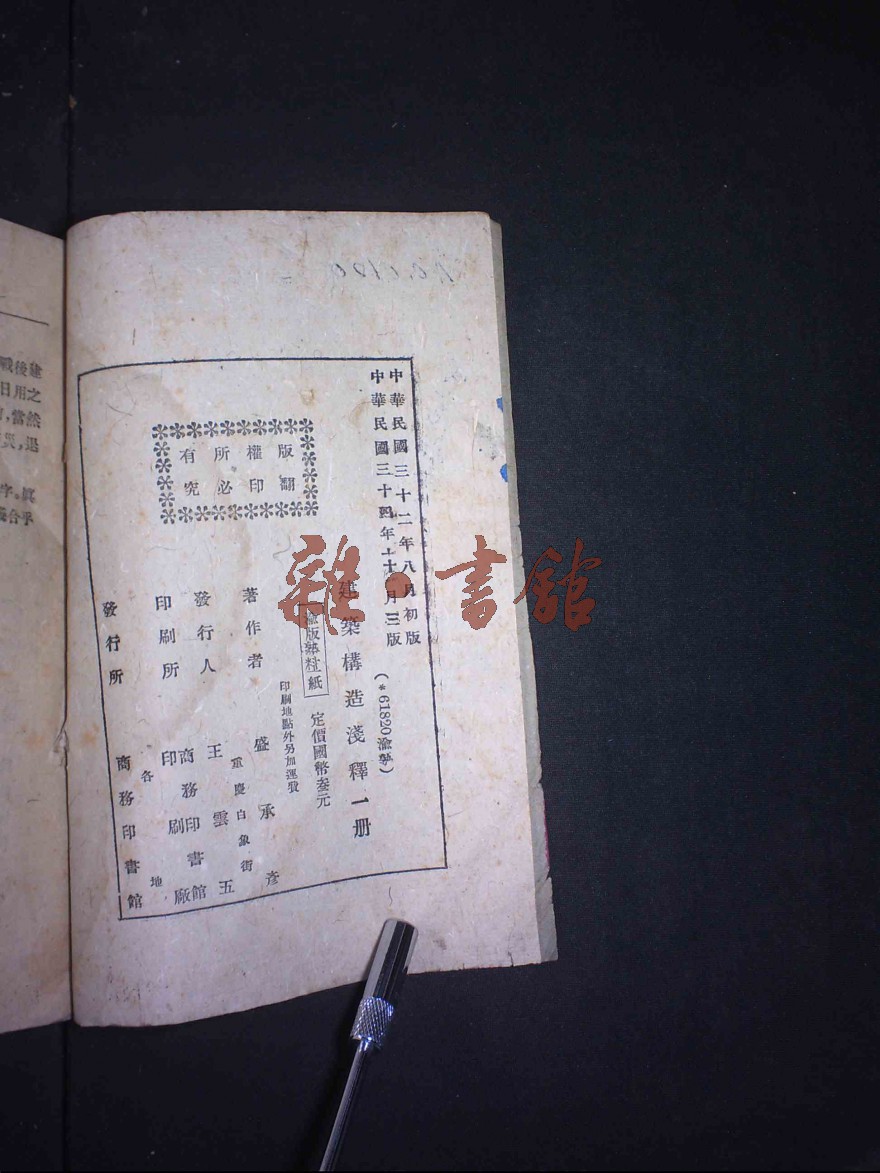 中華民國三十二年八月初版
中華民國三十四年十二月三版
(*61820渝熟)
建築構造淺釋一册
渝版熟料紙
定價國幣叁元
印刷地點外另加運費
著作者 盛承彥
重慶白象街
發行人 王雲五
印刷所 商務印書館
印刷廠
發行所 各地
商務印書館
版權所有
翻印必究
戰後建
日用之
當然
災,退
字。眞
合乎
雜·書館